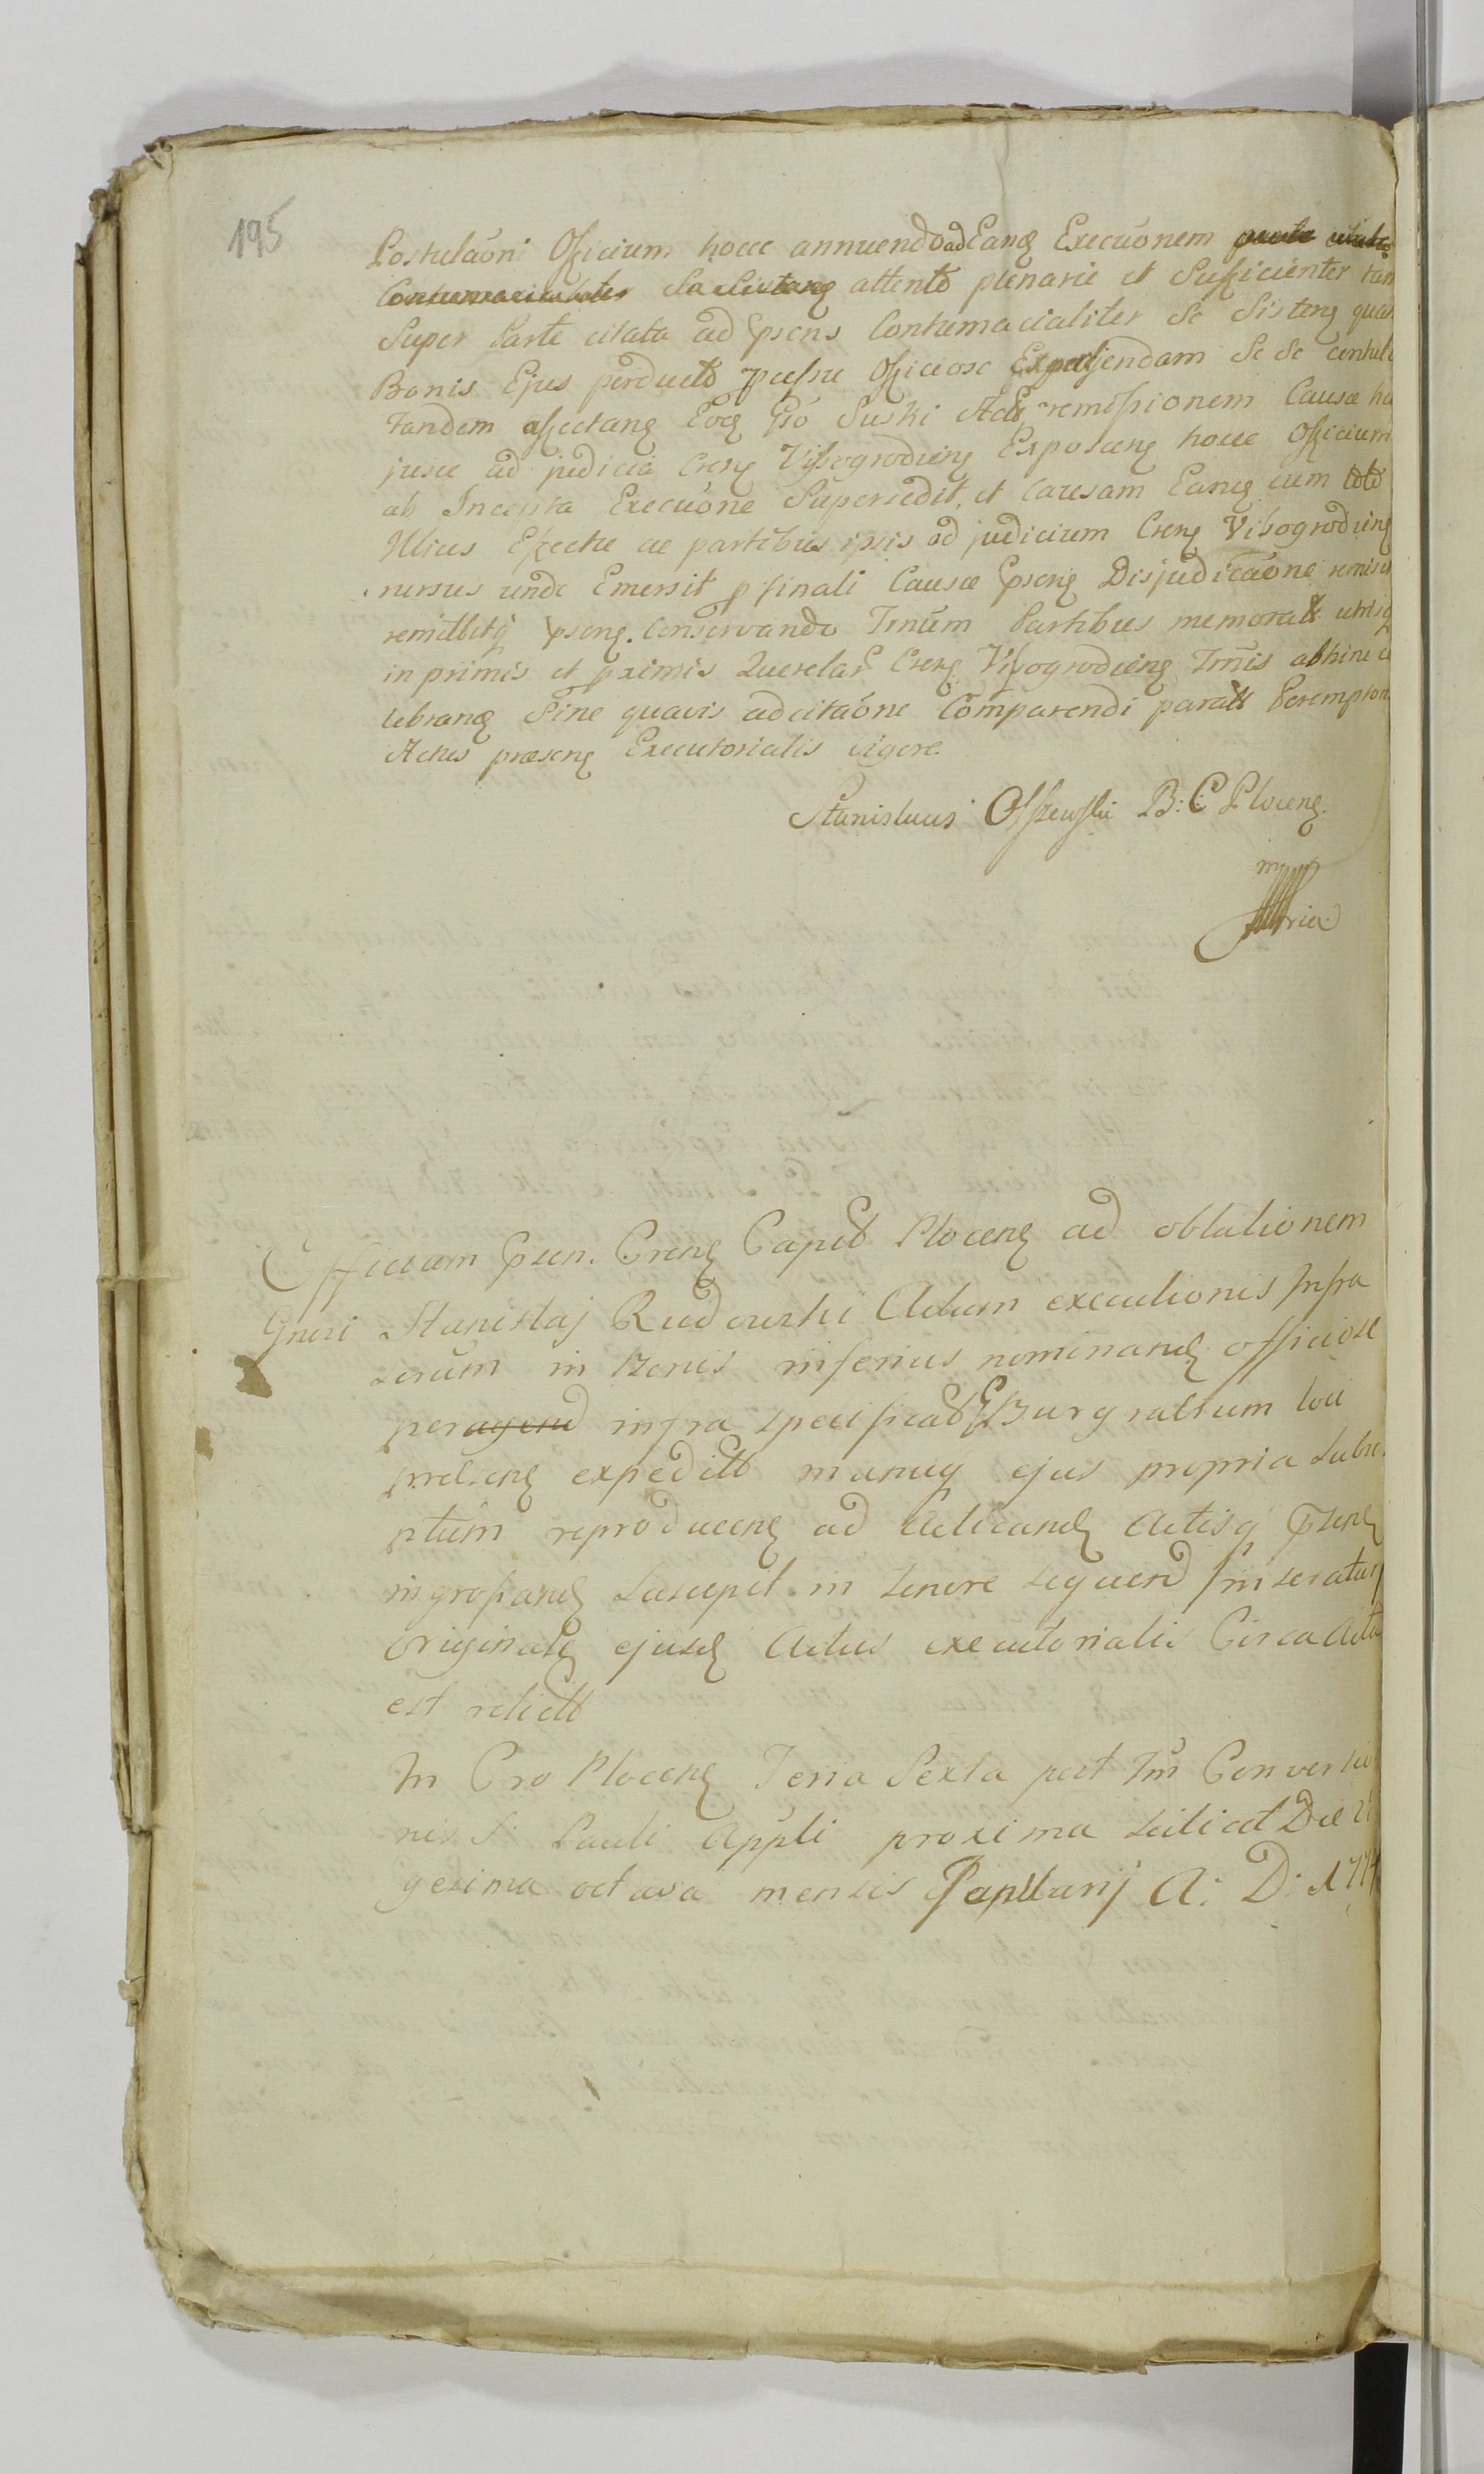 195
Postulaōni Officium hocce annuendo ad Eandꝫ Execuōnem
attento plenarie et Sufficienter tam
Super Parte citata ad Ꝑsens Contumacialiter Se Sisteng quam
Bonis Ejus perducto Officiose Expediendam Se Se contuli
tandem affectang Eodꝫ Gso Suski Acto remissionem Causæ hu
jusce ad judicia Creng Vissogrodieng Exposceng hocce Officium
ab Incepta Execuōne Supersedit, et Causam Eandꝫ cum toto
Illius Effectu ac partibus ipsis ad judicium Creng Vissogrodieng
rursus unde Emersit p finali Causæ Ꝑseng Disjudicaōne remisit
remittitq Ꝑseng. Conservando Tmūm Partibus memoratt utrisq
in primis et pximis Querelar Creng Vissogrodieng Tmīs abhinc ce
lebrandꝫ Sine quavis adcitaōne Comparendi paratt Peremptori
Actus præseng Executorialis vigore.
Stanislaus Olszewski B: C Ploceng.
mpp
ria
Officium Ꝑsen. Creng Capit Ploceng ad oblationem
Gnosi Stanislaj Rudowski Actum executionis Infra
serūm in Bonis inferius nominandꝫ officiose
peragend infra specificat Ꝑ Burgrabium loci
preseng expeditt manuq ejus propria Subscri
ptūm reproduceng ad Acticandꝫ Actisq Ꝑsentꝫ
ingrossandꝫ Suscepit in tenore sequend Inseratur
Originale ejusdꝫ Actus executorialis Circa Acta
est relictt
In Cro Ploceng Feria Sexta post Fm̄ Conversio
nis S: Pauli Appli proxima scilicet Die Vi
gesima octava mensis Januarij A: D: 177